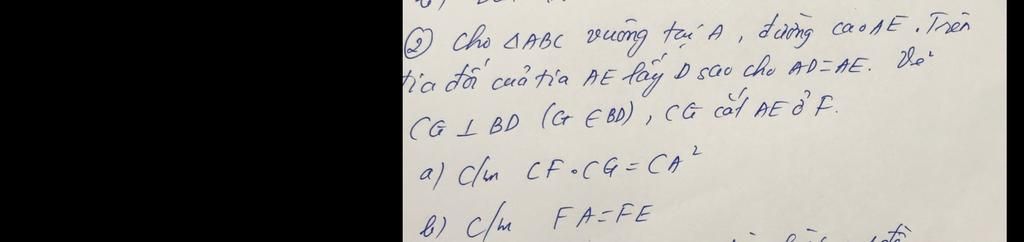 ② Cho △ABC vuông tại A, đường cao AE. Trên
tia đối của tia AE lấy D sao cho AD=AE. Vẽ
CG ⊥ BD (G ∈ BD), CG cắt AE ở F.
a) C/m CF.CG = CA²
b) C/m FA=FE